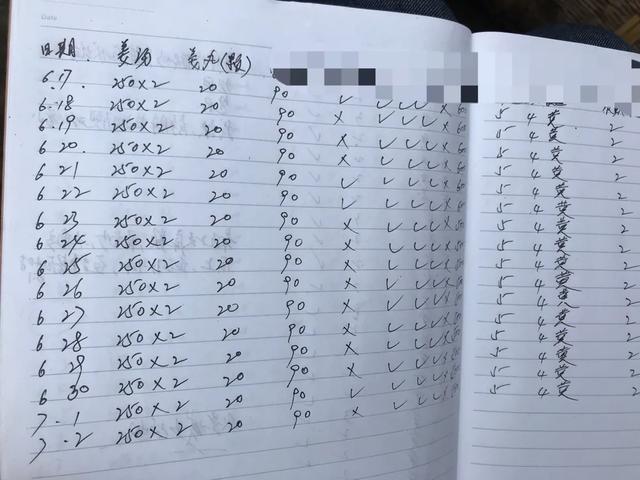 Date
日期 姜汤 姜丸(颗)
6.17 250×2 20 90 ✓ ✓ ✓ ✓ × 5 4 黄 2
6.18 250×2 20 90 × ✓ ✓ ✓ × 5 4 黄 2
6.19 250×2 20 90 × ✓ ✓ ✓ × 5 4 黄 2
6 20. 250×2 20 90 × ✓ ✓ ✓ × 5 4 黄 2
6 21 250×2 20 90 ✓ ✓ ✓ ✓ × 5 4 黄 2
6 22 250×2 20 90 ✓ ✓ ✓ ✓ × 5 4 黄 2
6 23 250×2 20 90 × ✓ ✓ ✓ × 5 4 黄 2
6 24 250×2 20 90 × ✓ ✓ ✓ × 5 4 黄 2
6 25 250×2 20 90 × ✓ ✓ ✓ × 5 4 黄 2
6 26 250×2 20 90 × ✓ ✓ ✓ × 5 4 黄 2
6 27 250×2 20 90 × ✓ ✓ ✓ × 5 4 黄 2
6 28 250×2 20 90 × ✓ ✓ ✓ × 5 4 黄 2
6 29 250×2 20 90 × ✓ ✓ ✓ × 5 4 黄 2
6 30 250×2 20 90 × ✓ ✓ ✓ × 5 4 黄 2
7.1 250×2 20 90 ✓ ✓ ✓ ✓ × 5 4 黄 2
7.2 250×2 20 90 × ✓ ✓ ✓ × 5 4 黄 2